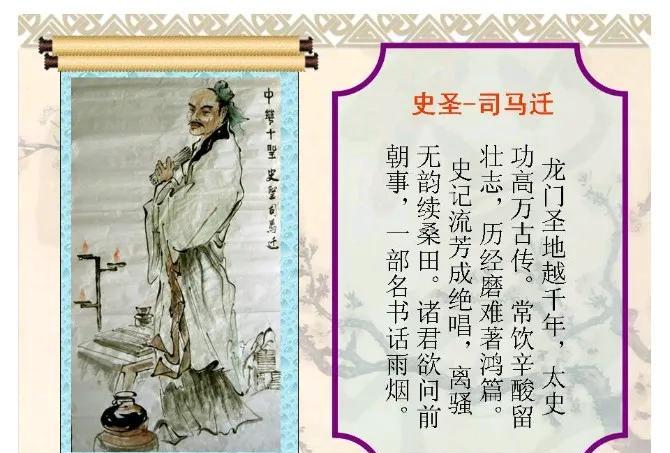 中華十聖 史聖司馬迁
史圣-司马迁
龙门圣地越千年，太史
功高万古传。常饮辛酸留
壮志，历经磨难著鸿篇。
史记流芳成绝唱，离骚
无韵续桑田。诸君欲问前
朝事，一部名书话雨烟。